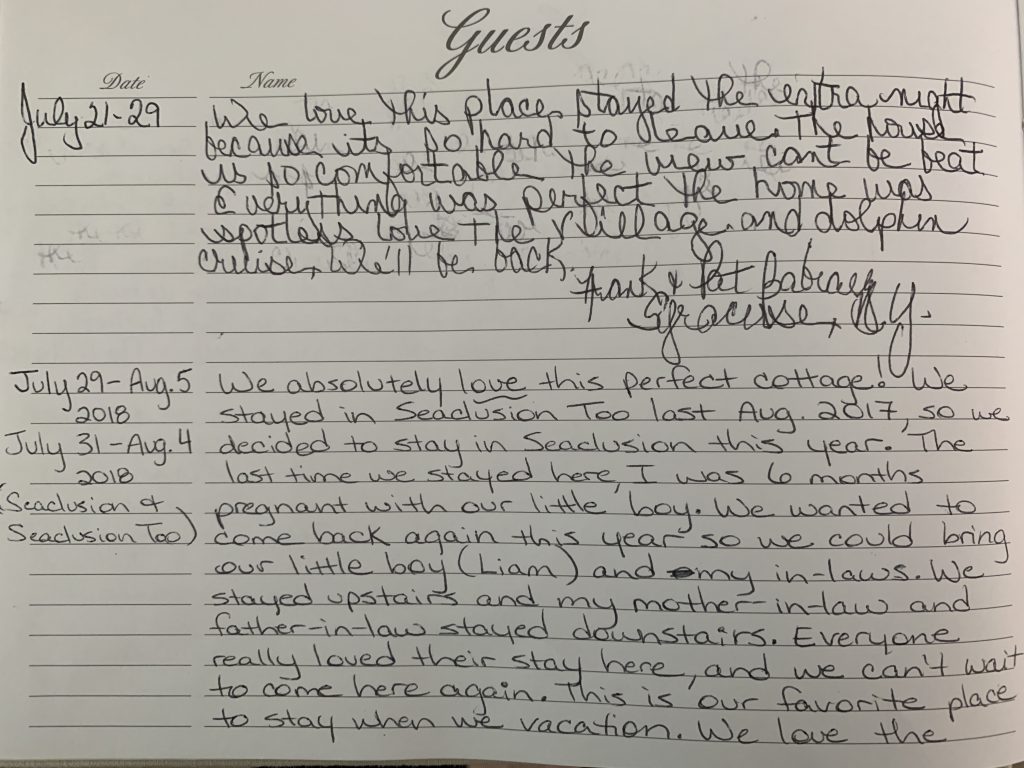 Guests
Date Name
July 21-29 We love this place, stayed the extra night
because its so hard to leave. The house
is so comfortable the view cant be beat
Everything was perfect the home was
spotless love the Village and dolphin
cruise, We'll be back.
Frank & Pat
Syracuse, NY.
July 29-Aug.5 We absolutely love this perfect cottage! We
2018 stayed in Seaclusion Too last Aug. 2017, so we
July 31-Aug.4 decided to stay in Seaclusion this year. The
2018 last time we stayed here, I was 6 months
(Seaclusion & pregnant with our little boy. We wanted to
Seaclusion Too) come back again this year so we could bring
our little boy (Liam) and my in-laws. We
stayed upstairs and my mother-in-law and
father-in-law stayed downstairs. Everyone
really loved their stay here, and we can't wait
to come here again. This is our favorite place
to stay when we vacation. We love the